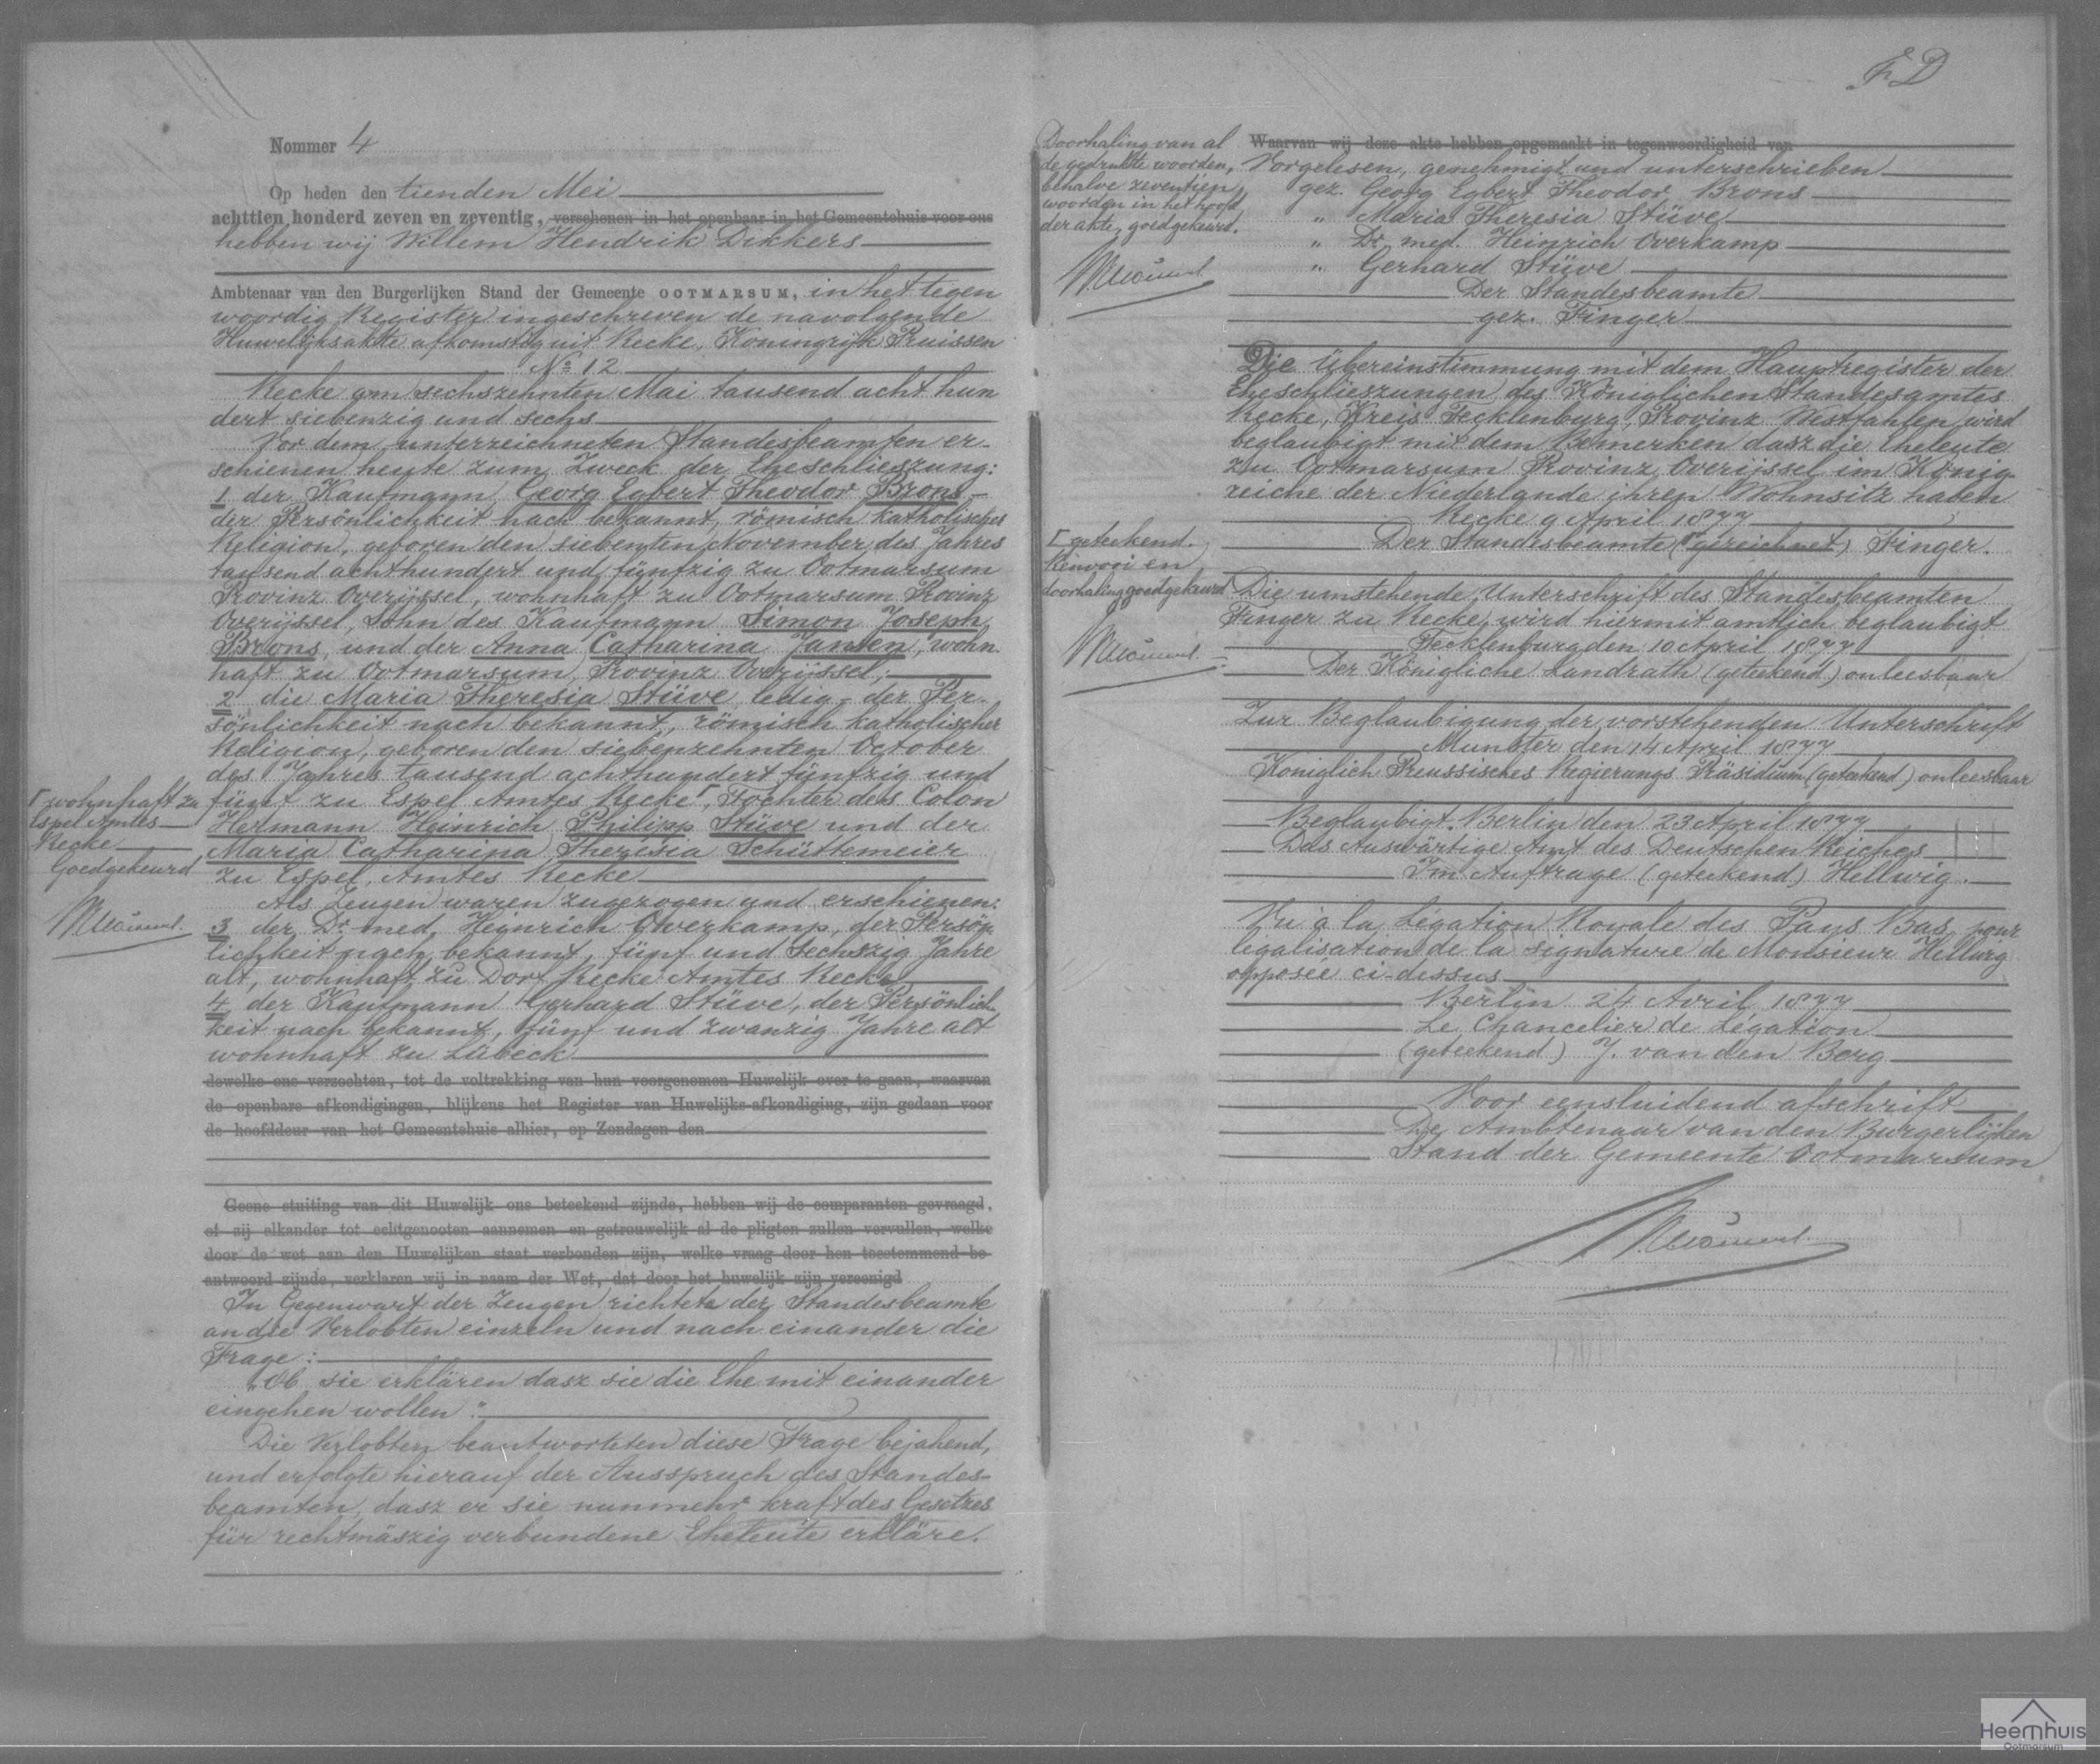 F D
Nommer 4
Op heden den tienden Mei
achttien honderd zeven en zeventig, verschenen in het openbaar in het Gemeentehuis voor ons
hebben wij Willem Hendrik Dikkers
Ambtenaar van den Burgerlijken Stand der Gemeente OOTMARSUM, in het tegen
woordig Register ingeschreven de navolgende
Huwelijksakte afkomstig uit Recke, Koningrijk Pruissen
No 12
Recke am sechszehnten Mai tausend acht hun
dert siebenzig und sechs
Vor dem unterzeichneten Standesbeamten er-
schienen heute zum Zweck der Eheschlieszung:
1 der Kaufmann Georg Egbert Theodor Brons
der Persönlichkeit nach bekannt, römisch katholischer
Religion, geboren den siebenten November des Jahres
tausend achthundert und fünfzig zu Ootmarsum
Provinz Overijssel, wohnhaft zu Ootmarsum Provinz
Overijssel, Sohn des Kaufmann Simon Joseph
Brons, und der Anna Catharina Jansen, wohn
haft zu Ootmarsum, Provinz Overijssel,
2 die Maria Theresia Stüve ledig, der Per-
sönlichkeit nach bekannt, römisch katholischer
Religion, geboren den siebenzehnten October
des Jahres tausend achthundert fünfzig und
fünf zu Espel Amtes Recke ⌈, Tochter des Colon
Hermann Heinrich Philipp Stüve und der
Maria Catharina Theresia Schüttemeier
zu Espel, Amtes Recke
⌈ wohnhaft zu
Espel Amtes
Recke
Goedgekeurd
Als Zeugen waren zugezogen und erschienen:
3 der Dr med. Heinrich Overkamp, der Persön
lichkeit nach bekannt, fünf und sechszig Jahre
alt, wohnhaft zu Dorf Recke Amtes Recke
4 der Kaufmann Gerhard Stüve, der Persönlich
keit nach bekannt, fünf und zwanzig Jahre alt
wohnhaft zu Lübeck
dewelke ons verzochten, tot de voltrekking van hun voorgenomen Huwelijk over te gaan, waarvan
de openbare afkondigingen, blijkens het Register van Huwelijks-afkondiging, zijn gedaan voor
de hoofddeur van het Gemeentehuis alhier, op Zondagen den
Geene stuiting van dit Huwelijk ons beteekend zijnde, hebben wij de comparanten gevraagd,
of zij elkander tot echtgenooten aannemen en getrouwelijk al de pligten zullen vervullen, welke
door de wet aan den Huwelijken staat verbonden zijn, welke vraag door hen toestemmend be-
antwoord zijnde, verklaren wij in naam der Wet, dat door het huwelijk zijn vereenigd
In Gegenwart der Zeugen richtete der Standesbeamte
an die Verlobten einzeln und nach einander die
Frage:
"Ob sie erklären dasz sie die Ehe mit einander
eingehen wollen".
Die Verlobten beantworteten diese Frage bejahend,
und erfolgte hierauf der Ausspruch des Standes-
beamten, dasz er sie nunmehr kraft des Gesetzes
für rechtmäszig verbundene Eheleute erkläre.
Doorhaling van al
de gedrukte woorden,
behalve zeventien
woorden in het hoofd
der akte, goedgekeurd.
Waarvan wij deze akte hebben opgemaakt in tegenwoordigheid van
Vorgelesen, genehmigt und unterschrieben
gez. Georg Egbert Theodor Brons
" Maria Theresia Stüve
" Dr med. Heinrich Overkamp
" Gerhard Stüve
Der Standesbeamte
gez. Finger
Die Übereinstimmung mit dem Hauptregister der
Eheschlieszungen des Königlichen Standesamtes
Recke, Kreis Tecklenburg, Provinz Westfahlen wird
beglaubigt mit dem Bemerken dasz die Eheleute
zu Ootmarsum Provinz Overijssel im König
reiche der Niederlande ihren Wohnsitz haben
Recke 9 April 1877
Der Standesbeamte (⌈ gezeichnet) Finger.
⌈ geteekend.
Renvooi en
doorhaling goedgekeurd
Die umstehende Unterschrift des Standesbeamten
Finger zu Recke wird hiermit amtlich beglaubigt
Tecklenburg den 10 April 1877
Der Königliche Landrath (geteekend) onleesbaar
Zur Beglaubigung der vorstehenden Unterschrift
Munster den 14 April 1877
Königlich Preussisches Regierungs Präsidium (geteekend) onleesbaar
Beglaubigt. Berlin den 23 April 1877
Das Auswärtige Amt des Deutschen Reiches
Im Auftrage (geteekend) Hellwig.
Vu à la Légation Royale des Pays Bas pour
legalisation de la signature de Monsieur Hellwig
opposée ci-dessus
Berlin 24 Avril 1877
Le Chancelier de Légation
(geteekend) J. van den Berg
Voor eensluidend afschrift
De Ambtenaar van den Burgerlijken
Stand der Gemeente Ootmarsum
Heemhuis
Ootmarsum